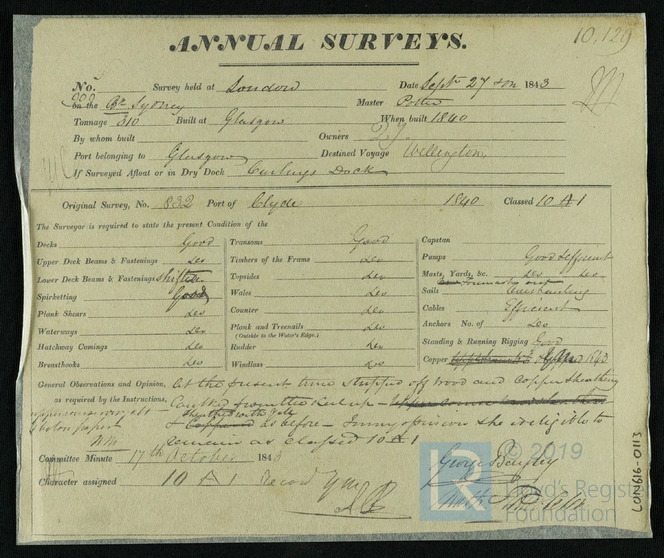 10,129
ANNUAL SURVEYS.
No. 900 Survey held at London Date Septr 27 1843
on the Bk. Sydney Master Potter
Tonnage 310 Built at Glasgow When built 1840
By whom built Owners
Port belonging to Glasgow Destined Voyage Wellington
If Surveyed Afloat or in Dry Dock Curlings Dock
Original Survey, No. 832 Port of Clyde 1840 Classed 10 A 1
The Surveyor is required to state the present Condition of the
Decks Good
Upper Deck Beams & Fastenings Do
Lower Deck Beams & Fastenings
Spirketting Good
Plank Shears Do
Waterways Do
Hatchway Comings Do
Breasthooks Do
Transoms Good
Timbers of the Frame Do
Topsides Do
Wales Do
Counter Do
Plank and Treenails Do
(Outside to the Water's Edge.)
Rudder Do
Windlass Do
Capstan
Pumps Good & Efficient
Masts, Yards, &c. Do Do
Sails Overhauling
Cables Efficient
Anchors No. of Do
Standing & Running Rigging Good
Copper 1843
General Observations and Opinion, At the present time stripped off wood and Copper sheathing
as required by the Instructions, Caulked from the Keel up
& as before – In my opinion she is eligible to
remain as Classed 10 A 1
Committee Minute 17th October 1843
Character assigned 10 A 1
George Bayley
© 2019
Lloyd's Register
Foundation
LON616-0113